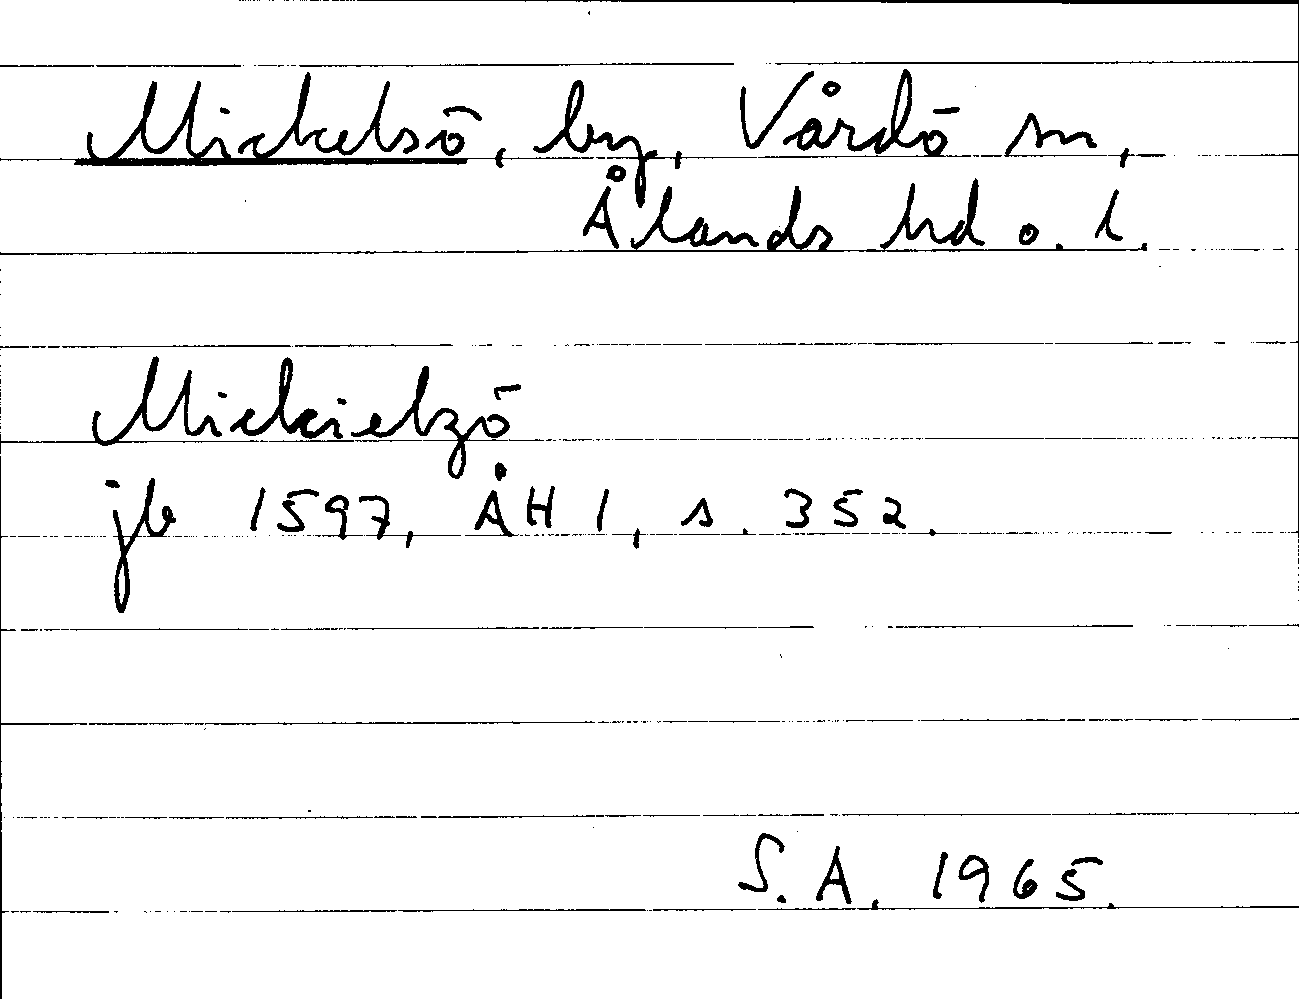 Mickelsö, by, Vårdö sn,
Ålands hd o. l.
Mickielzö
jb 1597, ÅH 1, s. 352.
S.A. 1965.